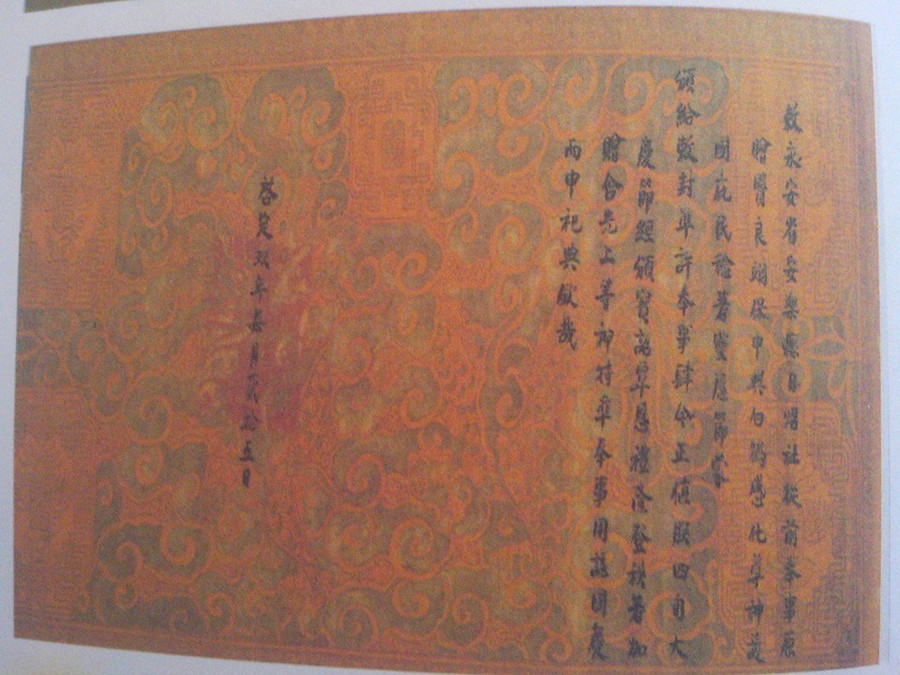 敕永安省安樂縣日昭社從前奉事原
贈賢良翊保中興白鶴感化尊神護
國庇民稔著靈應節蒙
頒給敕封準許奉事肆今正值朕四旬大
慶節經頒寶詔覃恩禮隆登秩著加
贈含光上等神特準奉事用誌國慶
而申祀典欽哉
啓定玖年柒月貳拾五日